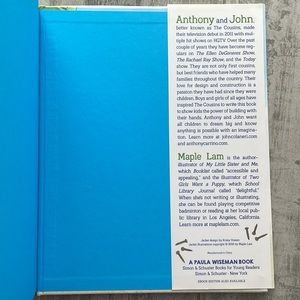 Anthony and John,
better known as The Cousins, made
their television debut in 2011 with mul-
tiple hit shows on HGTV. Over the past
couple of years they have become reg-
ulars on The Ellen DeGeneres Show,
The Rachael Ray Show, and the Today
show. They are not only first cousins,
but best friends who have helped many
families throughout the country. Their
love for design and construction is a
passion they have had since they were
children. Boys and girls of all ages have
inspired The Cousins to write this book
to show kids the power of building with
their hands. Anthony and John want
all children to dream big and know
anything is possible with an imagina-
tion. Learn more at johncolaneri.com
and anthonycarrino.com.
Maple Lam is the author-
illustrator of My Little Sister and Me,
which Booklist called "accessible and
appealing," and the illustrator of Two
Girls Want a Puppy, which School
Library Journal called "delightful."
When she's not writing or illustrating,
she can be found playing competitive
badminton or reading at her local pub-
lic library in Los Angeles, California.
Learn more at maplelam.com.
Jacket design by Krista Vossen
Jacket illustrations copyright © 2018 by Maple Lam
Manufactured in China
A PAULA WISEMAN BOOK
Simon & Schuster Books for Young Readers
Simon & Schuster · New York
EBOOK EDITION ALSO AVAILABLE